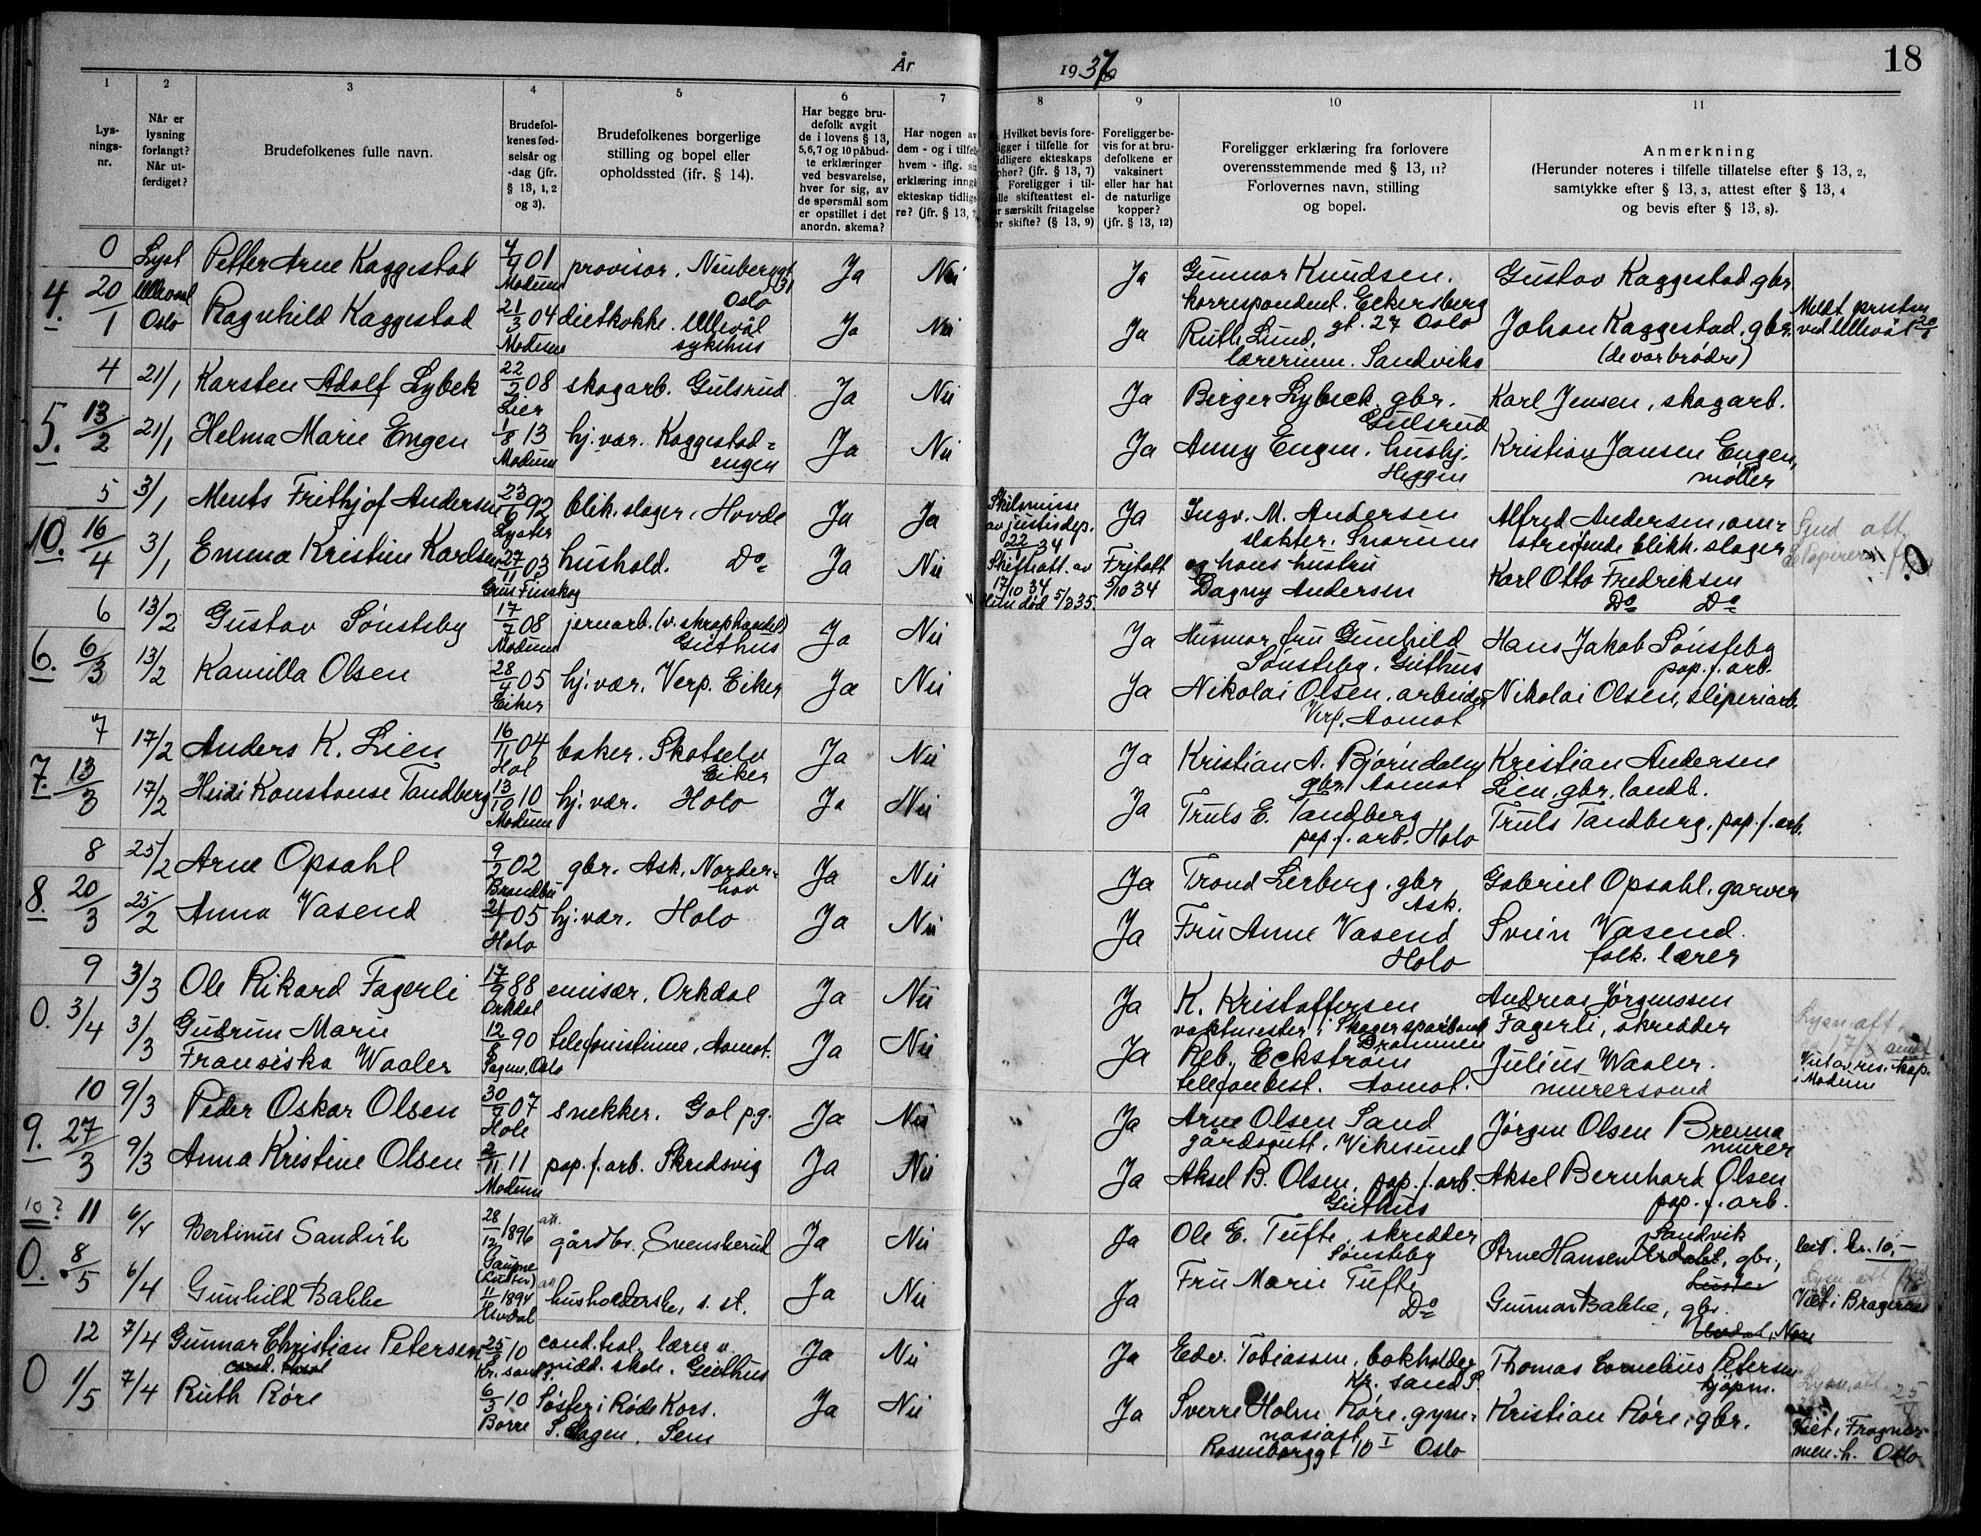 År
1937
18
1
2
3
4
5
6
7
8
9
10
11
Lys-
nings-
nr.
Når er
lysning
forlangt?
Når ut-
ferdiget?
Brudefolkenes fulle navn.
Brudefol-
kenes fød-
selsår og
-dag (jfr.
§ 13, 1, 2
og 3).
Brudefolkenes borgerlige
stilling og bopel eller
opholdssted (ifr. § 14).
Har begge bru-
defolk avgit
de i lovens § 13,
5,6,7 og 10 påbud-
te erklæringer
ved besvarelse,
hver for sig, av
de spørsmål som
er opstillet i det
anordn. skema?
Har nogen av
dem - og i tilfelle
hvem - iflg. sin
erklæring inngå
ekteskap tidlige-
re? (jfr. § 13, 7
Hvilket bevis fore-
ligger i tilfelle for
tidligere ekteskaps
ophør? (jfr. § 13, 7)
Foreligger i til-
felle skifteattest el-
ler særskilt fritagelse
for skifte? (§ 13, 9)
Foreligger be-
vis for at bru-
defolkene er
vaksinert
eller har hat
de naturlige
kopper?
(jfr. § 13, 12)
Foreligger erklæring fra forlovere
overensstemmende med § 13, 11?
Forlovernes navn, stilling
og bopel.
Anmerkning
(Herunder noteres i tilfelle tillatelse efter § 13, 2,
samtykke efter § 13, 3, attest efter § 13, 4
og bevis efter § 13, 8).
0 Lyst Petter Arne Kaggestad 4/9 01 Modum provisor. Neuberggt 31 Oslo Ja Nei Ja Gunnar Knudsen. korrespondent. Eckersberg gt. 27 Oslo Gustav Kaggestad, gbr.
4. 20/1 Ullevål Oslo Ragnhild Kaggestad 21/3 04 Modum dietkokke. Ullevål sykehus Ja Nei Ja Ruth Lund, lærerinne. Sandvika Johan Kaggestad, gbr. (de var brødre) Meldt presten ved Ullevål 20/1
4 21/1 Karsten Adolf Lybek 22/2 08 Lier skogarb. Gulsrud Ja Nei Ja Birger Lybeck, gbr. Gulsrud Karl Jensen, skogarb.
5. 13/2 21/1 Helma Marie Engen 1/8 13 Modum hj. vær. Kaggestad- engen Ja Nei Ja Anny Engen. hushj. Heggen Kristian Jansen Engen, møller
5 3/1 Ments Frithjof Andersen 23/6 92 Lyster blik. slager. Hovde Ja Ja Skilsmisse av justisdep. 22/1 34 Ja Ingv. M. Andersen slakter. Snarum Alfred Andersen, om- streifende blikk. slager
10. 16/4 3/1 Emma Kristine Karlsen 27/11 03 Grue Finskog hushold. Do Ja Nei Skifteatt. av 17/10 34 Hun død 5/2 35. Fritatt 5/10 34 og hans hustru Dagny Andersen Karl Otto Fredriksen Do Do
6 13/2 Gustav Sønsteby 17/7 08 Modum jernarb. (v. skraphandel) Geithus Ja Nei Ja Husmor, fru Gunhild Sønsteby. Geithus Hans Jakob Sønsteby pap. f. arb.
6. 6/3 13/2 Kamilla Olsen 28/4 05 Eiker hj. vær. Verp. Eiker Ja Nei Ja Nikolai Olsen. arbeider Verp. Aamot Nikolai Olsen, sliperiarb.
7 17/2 Anders K. Lien. 16/11 04 Hol baker. Skotselv Eiker Ja Nei Ja Kristian A. Bjørndalen gbr. Aamot Kristian Andersen Lien, gbr. landb.
7. 13/3 17/2 Heidi Konstanse Tandberg 13/10 10 Modum hj. vær. Holo Ja Nei Ja Truls E. Tandberg pap. f. arb. Holo Truls Tandberg. pap. f. arb.
8 25/2 Arne Opsahl 9/2 02 Brandbu gbr. Ask. Norder- hov Ja Nei Ja Trond Lerberg. gbr Ask. Gabriel Opsahl. garver
8. 20/3 25/2 Anna Vasend 05 Holo hj. vær. Holo Ja Nei Ja Fru Anne Vasend Holo Svein Vasend. folk. lærer
9 3/3 Ole Rikard Fagerli 17/9 88 Orkdal emisær. Orkdal Ja Nei Ja K. Kristoffersen vaktmester i Skoger sparebank Drammen Andreas Jørgenssen Fagerli, skredder
0. 3/4 3/3 Gudrun Marie Fransiska Waaler 12/8 90 Fagern. Oslo telefonistinne, Aamot. Ja Nei Ja Reb. Eckstrøm telefonbest. Aamot. Julius Waaler. murersvend Lysn. att 17/3 sendt Viet av res. kap. i Modum
10 9/3 Peder Oskar Olsen 30/9 07 Hole snekker. Gol p.g. Ja Nei Ja Arne Olsen Sand gårdsgutt. Vikesund Jørgen Olsen Brenna murer
9. 27/3 9/3 Anna Kristine Olsen 2/11 11 Modum pap. f. arb. Skredsvig Ja Nei Ja Aksel B. Olsen, pap. f. arb. Geithus Aksel Bernhard Olsen pap. f. arb.
10? 11 6/4 Bertinus Sandvik 28/12 1896 Gaupne (Luster) att. gårdbr. Svenskerud Ja Nei Ja Ole E. Tufte, skredder Sønsteby Arne Hansen Sandvik, gbr., Luster bet. kr. 10,-
0. 8/5 6/4 Gunhild Bakke 11/4 1894 Uvdal att husholderske, s. st. Ja Nei Ja Fru Marie Tufte Do Gunnar Bakke, gbr. Uvdal, Nore Viet i Bragernes
12 7/4 Gunnar Christian Petersen 25/8 10 Kr. sand S. cand. teol. lærer v. midd. skole. Geithus Ja Nei Ja Edv. Tobiassen, bokholder Kr. sand S. Thomas Cornelius Petersen kjøpm.
0 1/5 7/4 Ruth Røre 6/3 10 Borre Søster i Røde Kors. S. Hagen. Sem Ja Nei Ja Sverre Holm Røre, gym- nasiast Rosenborggt 10 I Oslo Kristian Røre, gbr. Lysn. att 25/4 Viet i Frogner men. h. Oslo